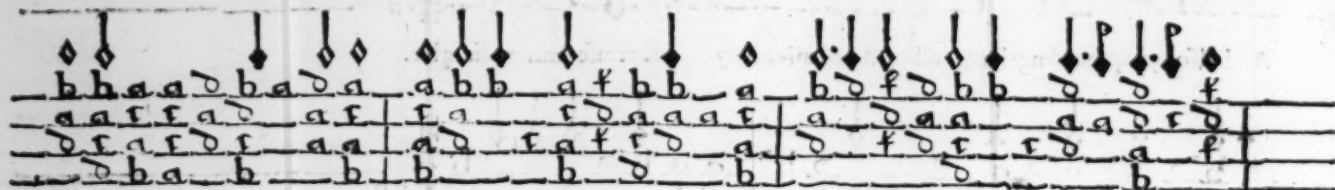 b b a a d b a d a a b b a f b b a b d f d b b d d f
a a r r a d a r | r a r d a a a r | a d a a a a d r d |
d r a r d r a a | a d r a f r d a | d f d r r d a f |
d b a b b | b b d b | d b |